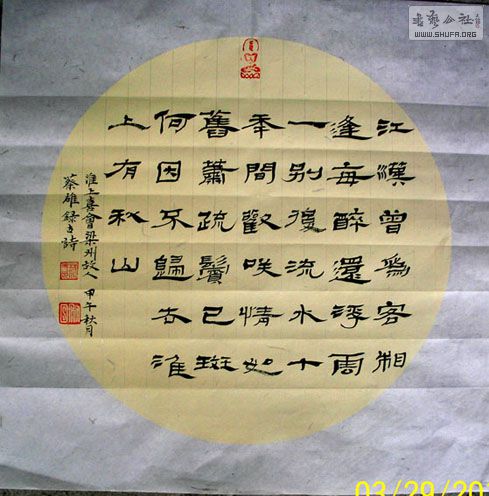 江漢曾爲客相
逢每醉還浮雲
一別後流水十
年間歡咲情如
舊蕭疏鬢已斑
何因不歸去淮
上有秋山
淮上喜會梁州故人 甲午秋月
蔡雄録古詩
書藝公社
WWW.SHUFA.ORG
03/29/20